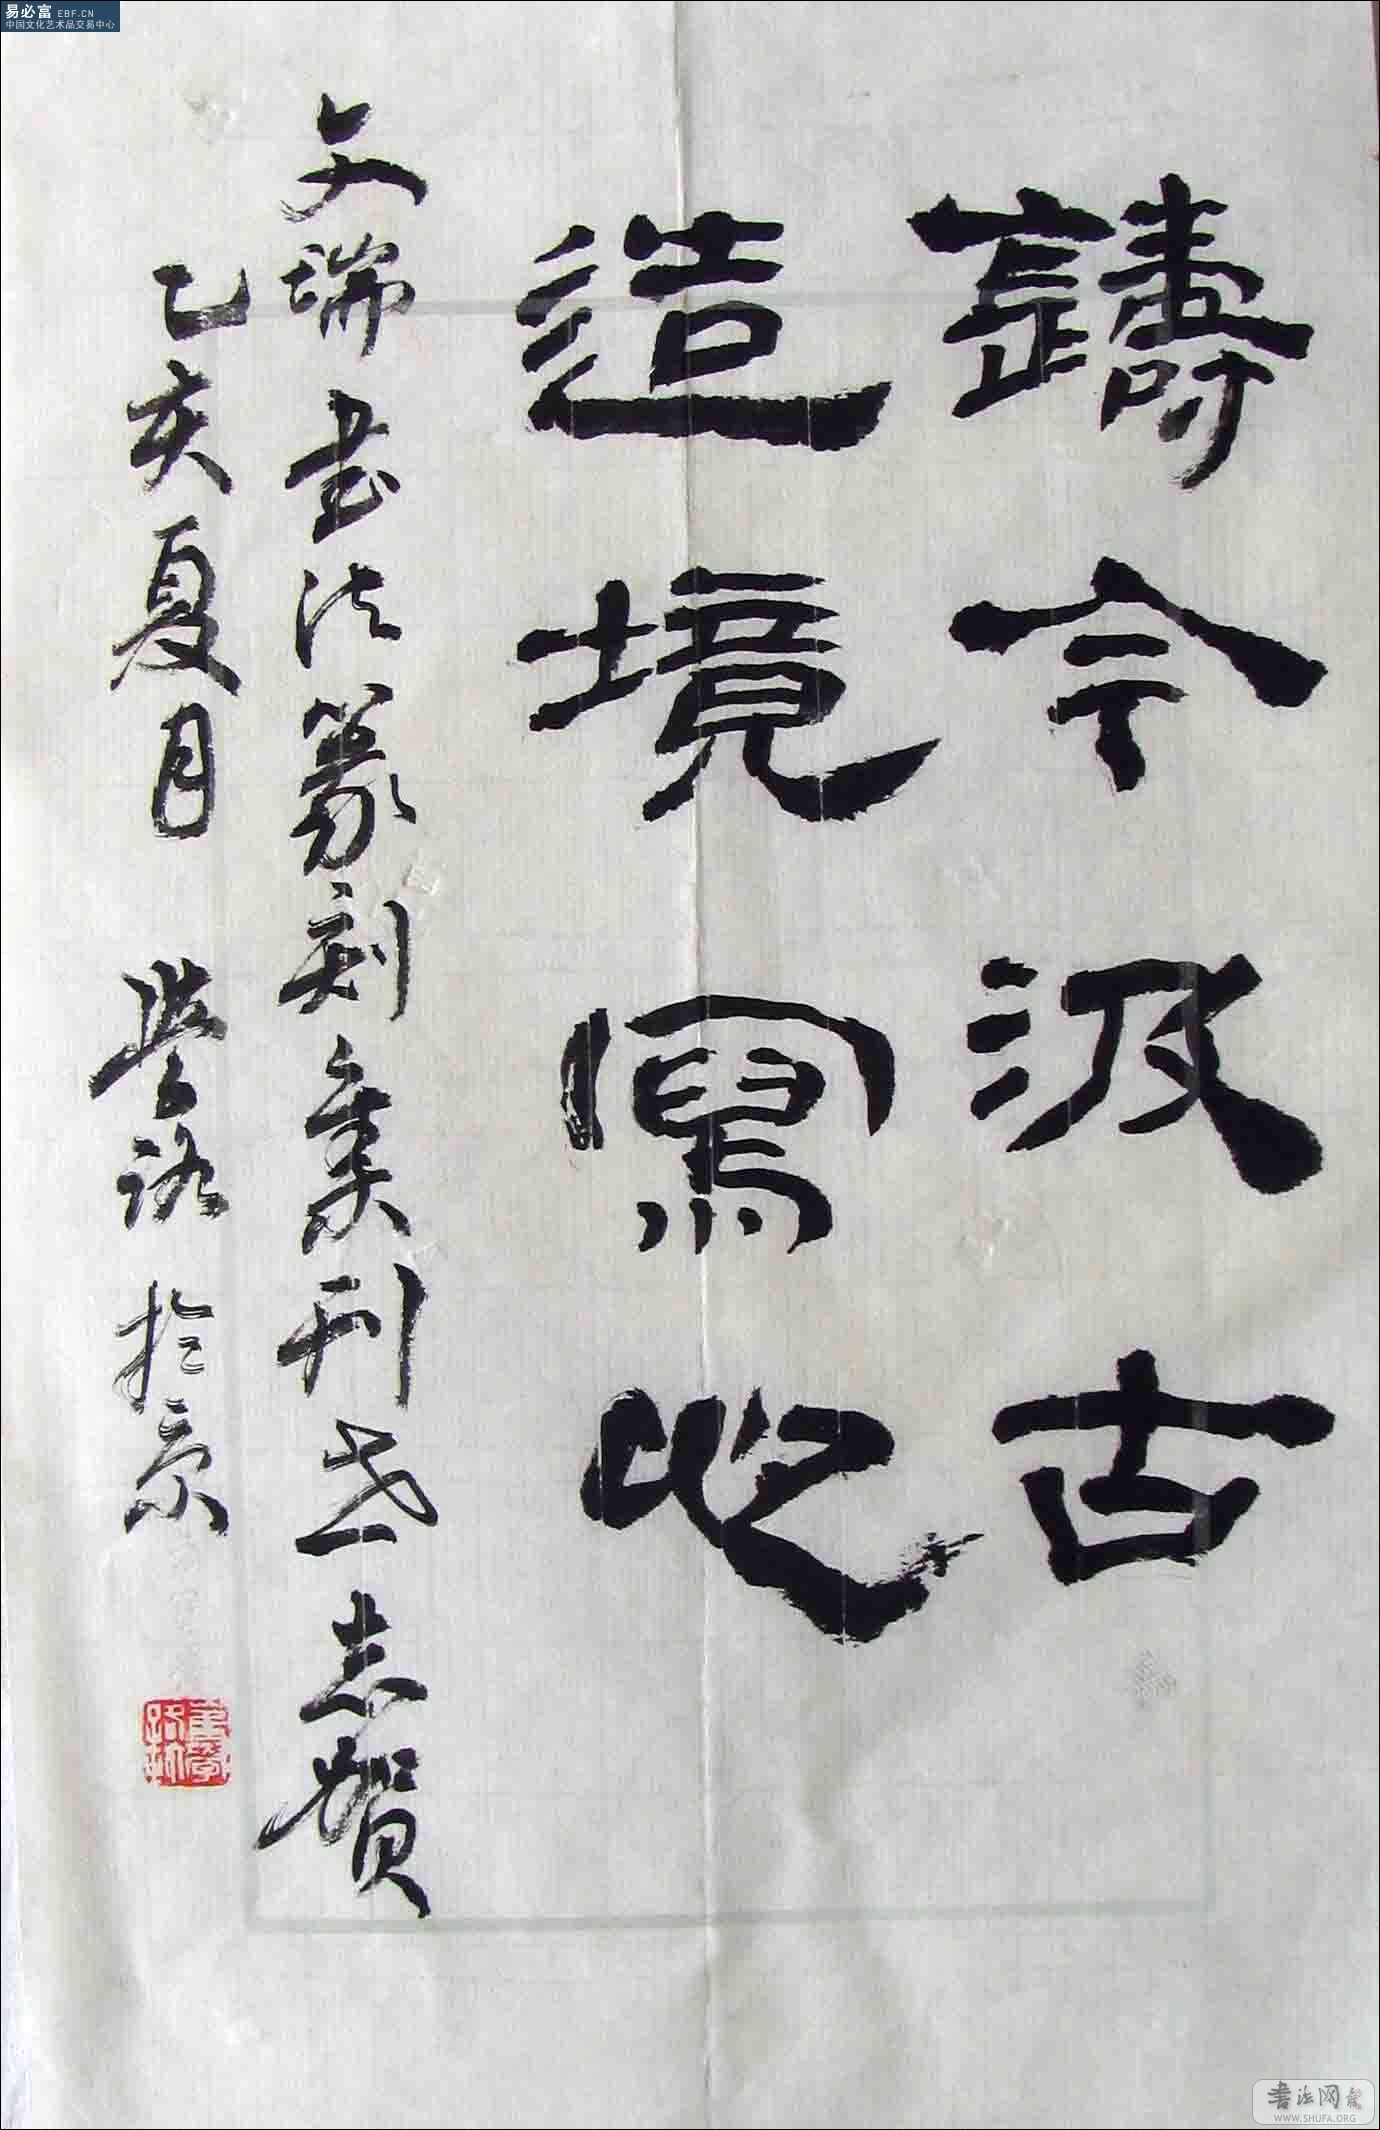 铸今汲古
造境寫心
文瑞书法篆刻集刊世志贺
乙亥夏月 学路於京
易必富 EBF.CN
中国文化艺术品交易中心
书法网
WWW.SHUFA.ORG